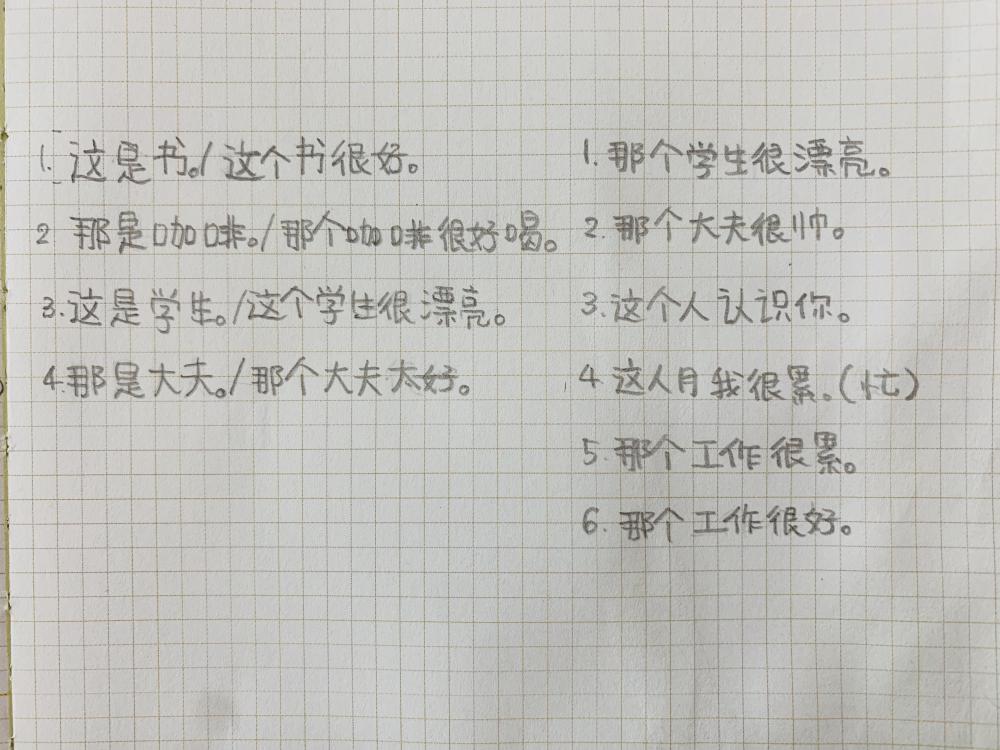 1. 这是书。/这个书很好。
2. 那是咖啡。/那个咖啡很好喝。
3. 这是学生。/这个学生很漂亮。
4. 那是大夫。/那个大夫太好。
1. 那个学生很漂亮。
2. 那个大夫很帅。
3. 这个人认识你。
4. 这人月我很累。(忙)
5. 那个工作很累。
6. 那个工作很好。